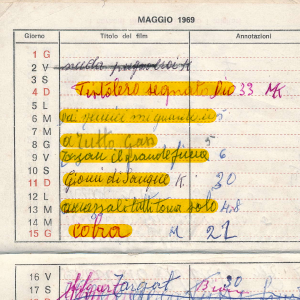 MAGGIO 1969
Giorno Titolo del film Annotazioni
1 G
2 V nuda K
3 S
4 D Pistolero segnato Dio 33 MK
5 L
6 M
7 M
8 G a Tutto Gas 5
9 V Tarzan il grande fiume 6
10 S Giorni di Sangue K. 30
11 D
12 L
13 M ammazzali tutti torna solo 428
14 M
15 G Cobra M 21
16 V Targat 30
17 S